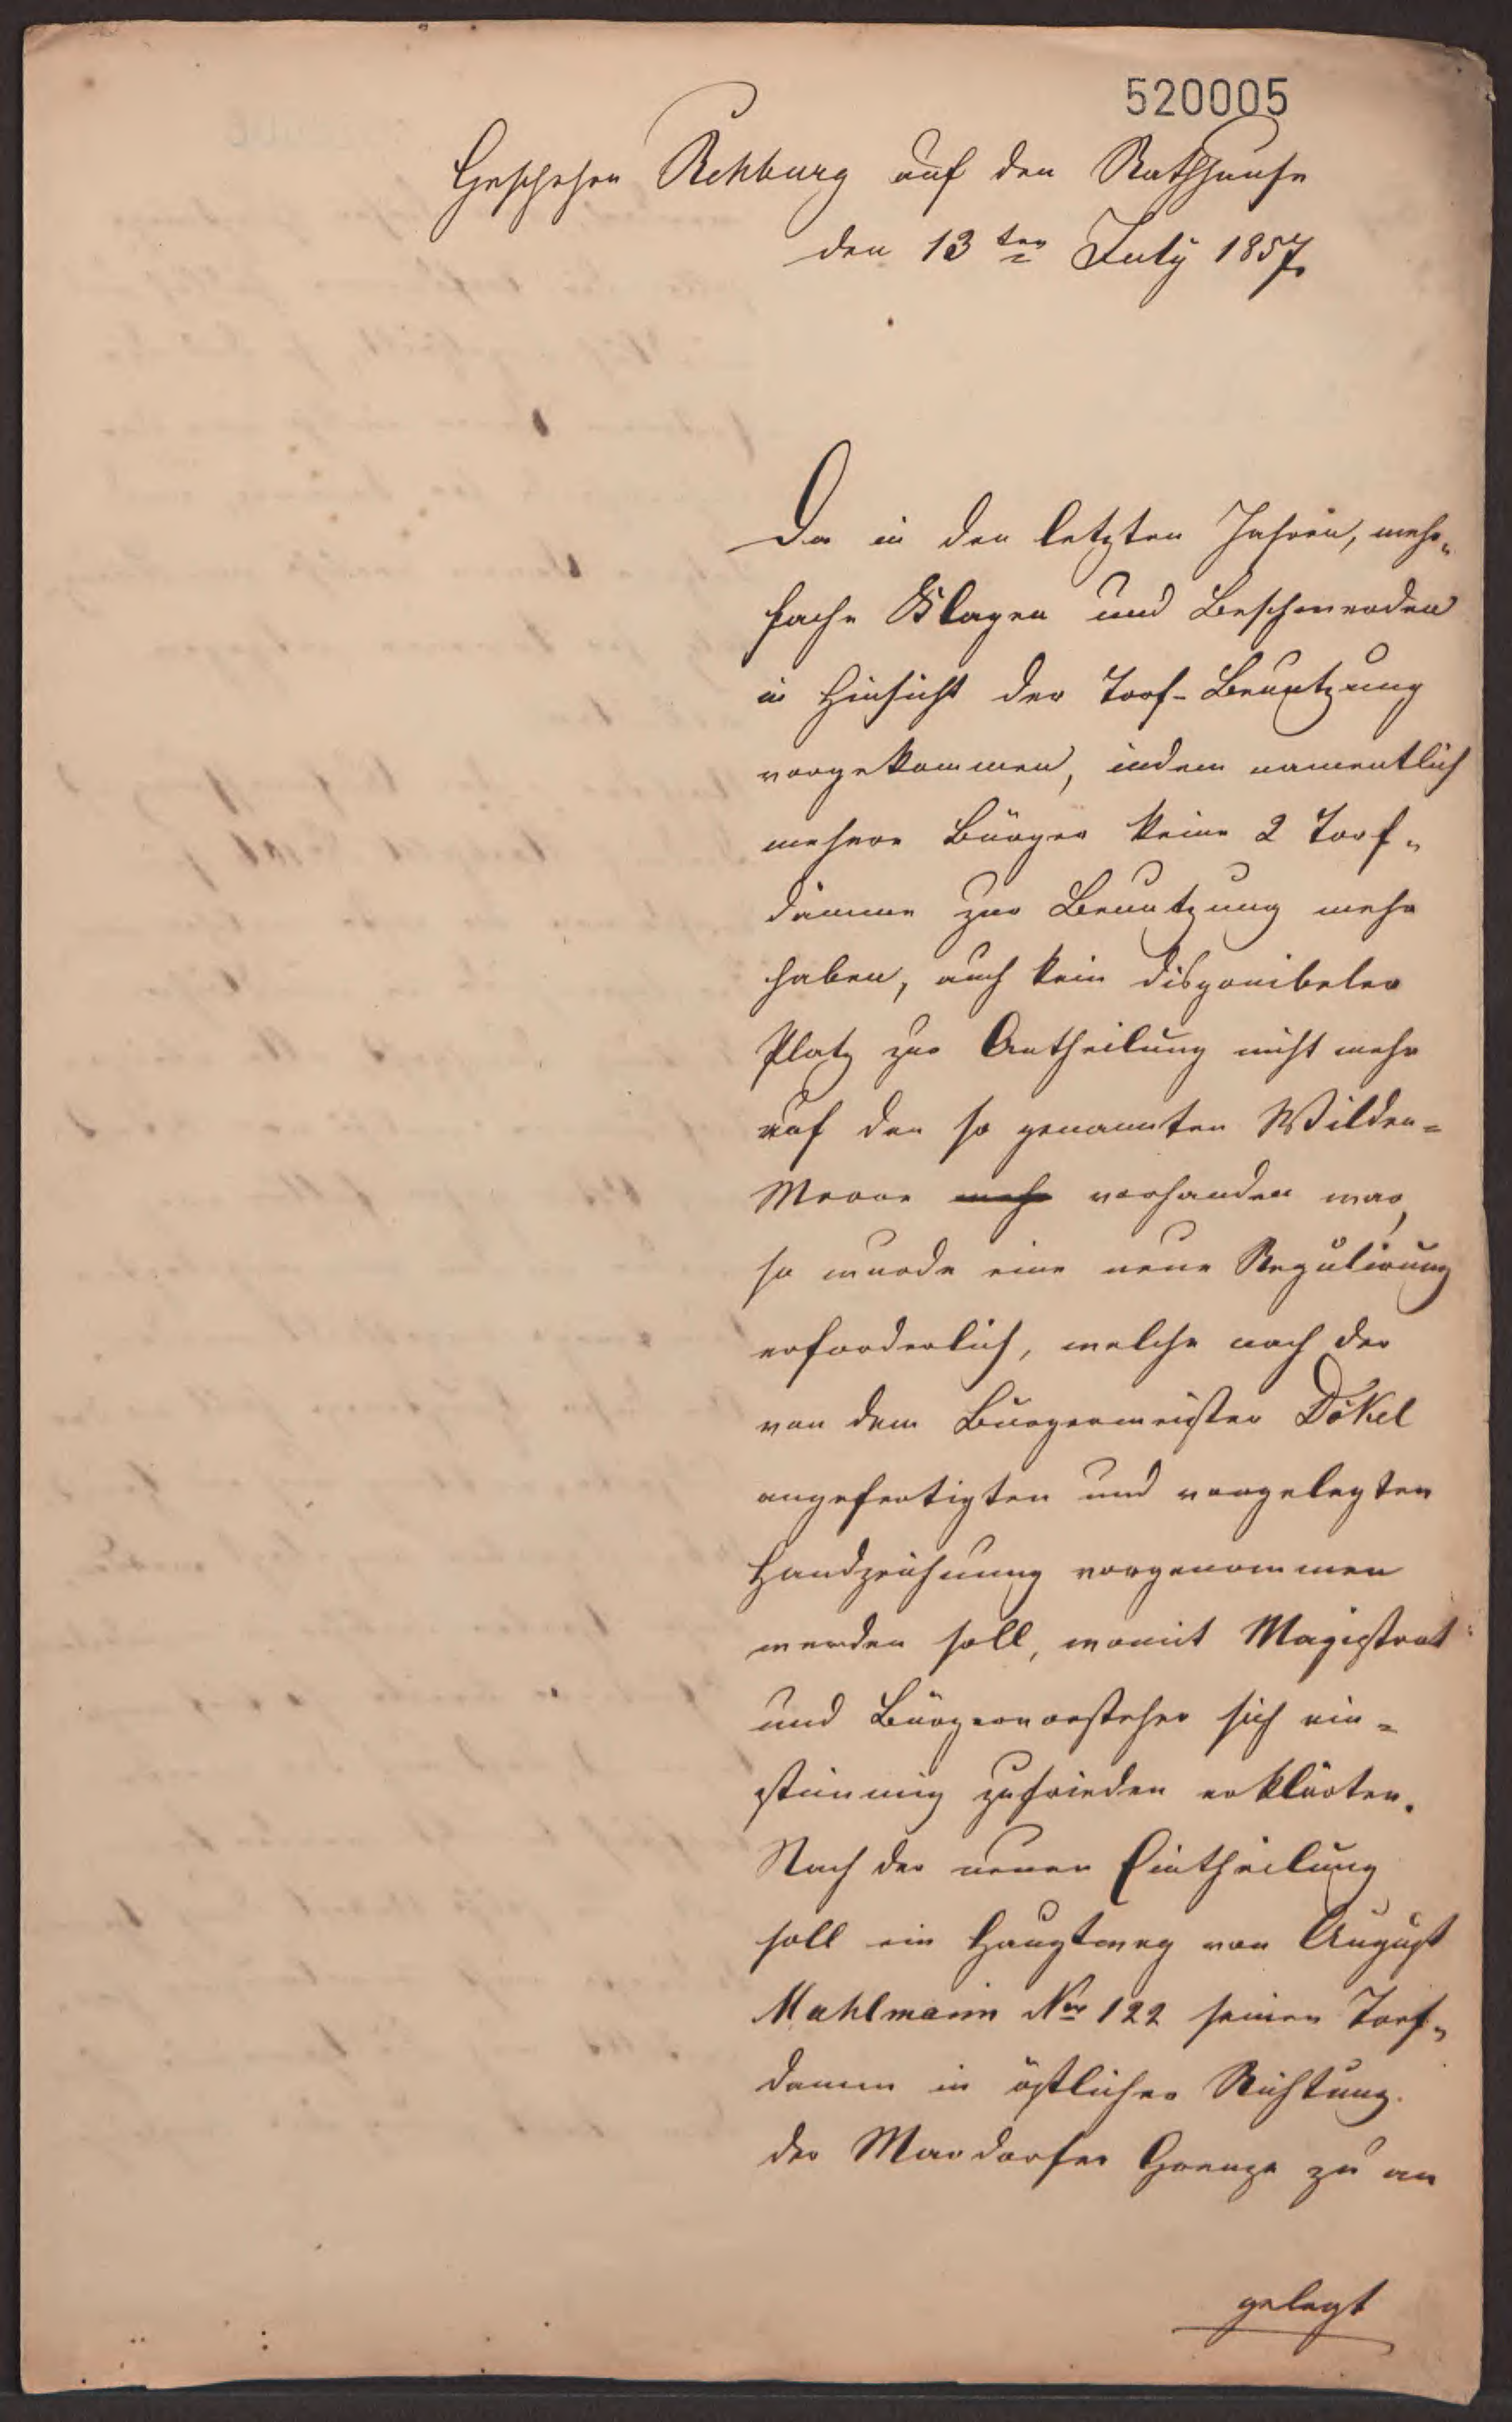 520005
Geschehen Rehburg auf den Rathhause
den 13ten July 1857.
Da in den letzten Jahren, mehr„
fache Klagen und Beschwerden
in Hinsicht der Torf-Benutzung
vorgekommen, indem namentlich
mehere Bürger keine 2 Torf„
dämme zur Benutzung mehr
haben, auch kein disponibeler
Platz zur Antheilung nicht mehr
auf den so genannten Wilden=
Moore mehr vorhanden war,
so wurde eine neue Regulirung
erforderlich, welche nach der
von dem Bürgermeister Dökel
angefertigten und vorgelegten
Handzeichnung vorgenommen
werden soll, womit Magistrat
und Bürgervorsteher sich ein=
stimmig zufrieden erklärten.
Nach der neuen Eintheilung
soll ein Hauptweg von August
Mahlmann Nro 122 seinen Torf„
damm in östlicher Richtung
der Mardorfer Grenze zu an
gelegt